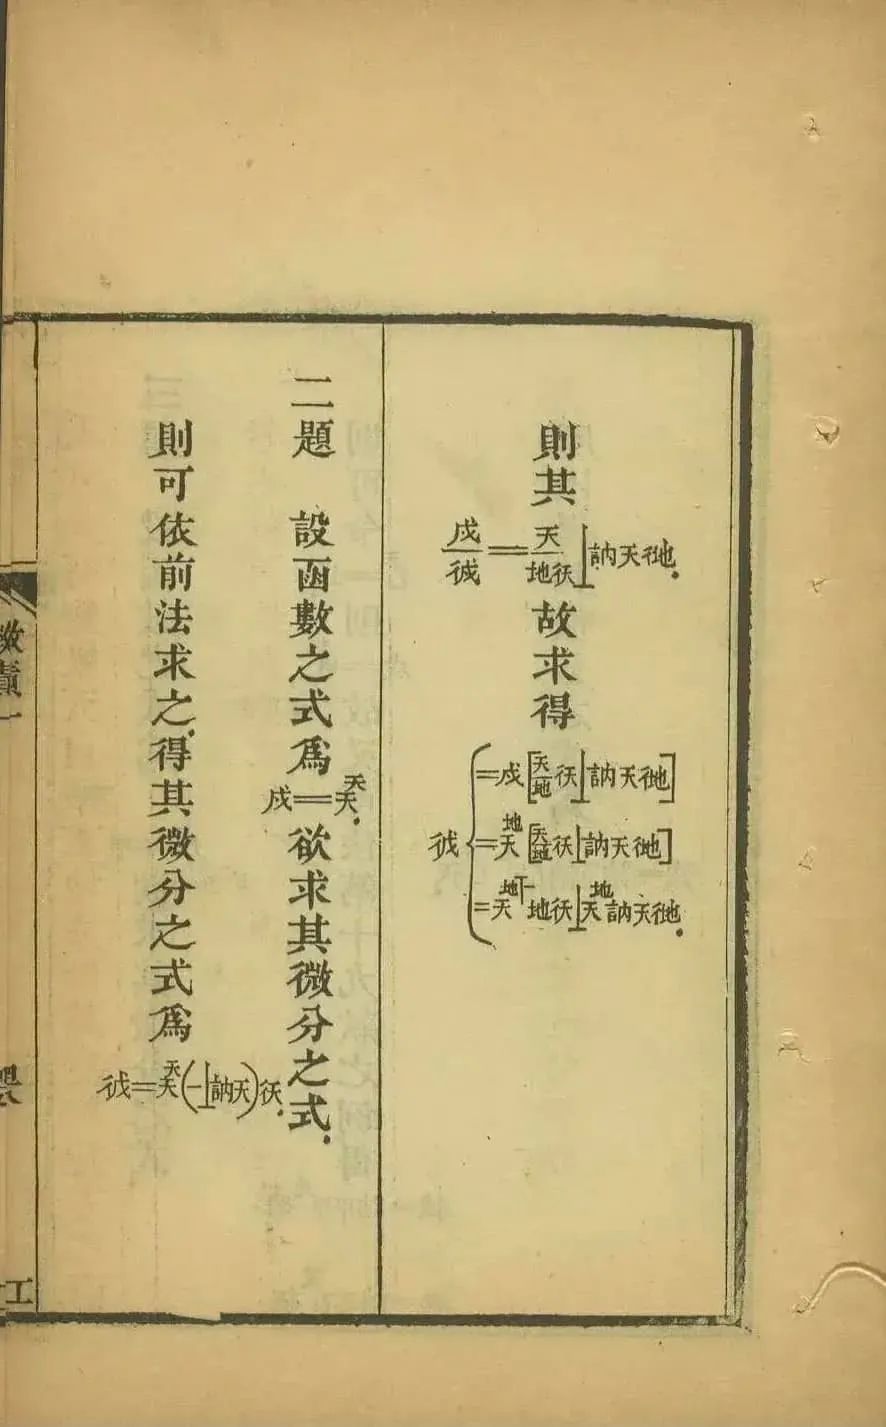 則其
戍/彽=天/地彳天⊥訥天彳地.
故求得
彳戍{=戍[天/地彳天⊥訥天彳地]
=天^地[天/地彳天⊥訥天彳地]
=天^地丅一地彳天⊥天^地訥天彳地.
二題　設函數之式爲
戍=天^天.
欲求其微分之式.
則可依前法求之.得其微分之式爲
彳戍=天^天(一⊥訥天)彳天.